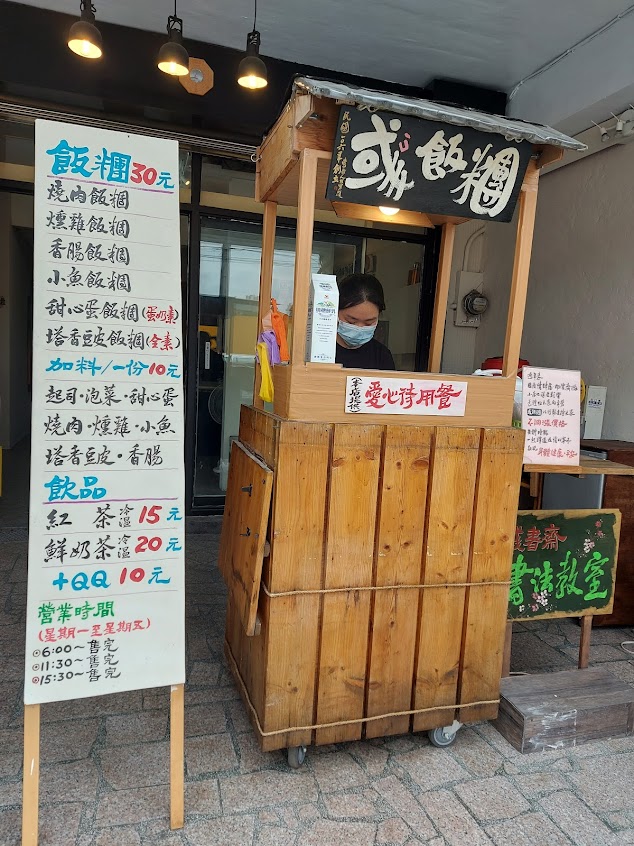 飯糰30元
燒肉飯糰
燻雞飯糰
香腸飯糰
小魚飯糰
甜心蛋飯糰(蛋奶素)
塔香豆皮飯糰(全素)
加料/一份10元
起司·泡菜·甜心蛋
燒肉·燻雞·小魚
塔香豆皮·香腸
飲品
紅茶 冷溫 15元
鮮奶茶 冷溫 20元
+QQ 10元
營業時間
(星期一至星期五)
6:00~售完
11:30~售完
15:30~售完
飯糰
本店提供
愛心待用餐
書齋
書法教室